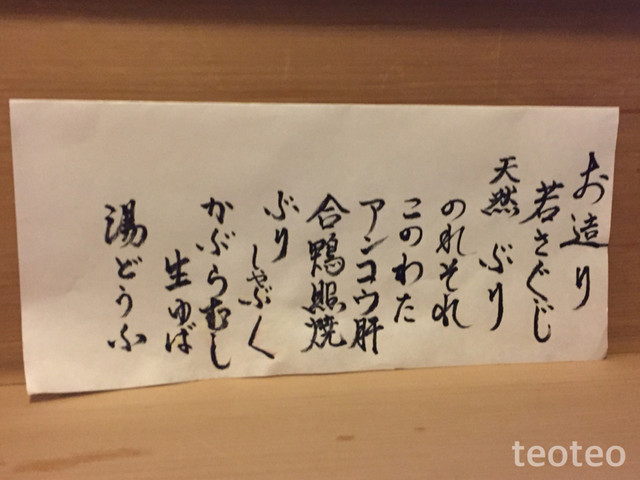 お造り
若さぐじ
天然 ぶり
のれそれ
このわた
アンコウ肝
合鴨照焼
ぶり
しゃぶ〱
かぶらむし
生ゆば
湯どうふ
teoteo